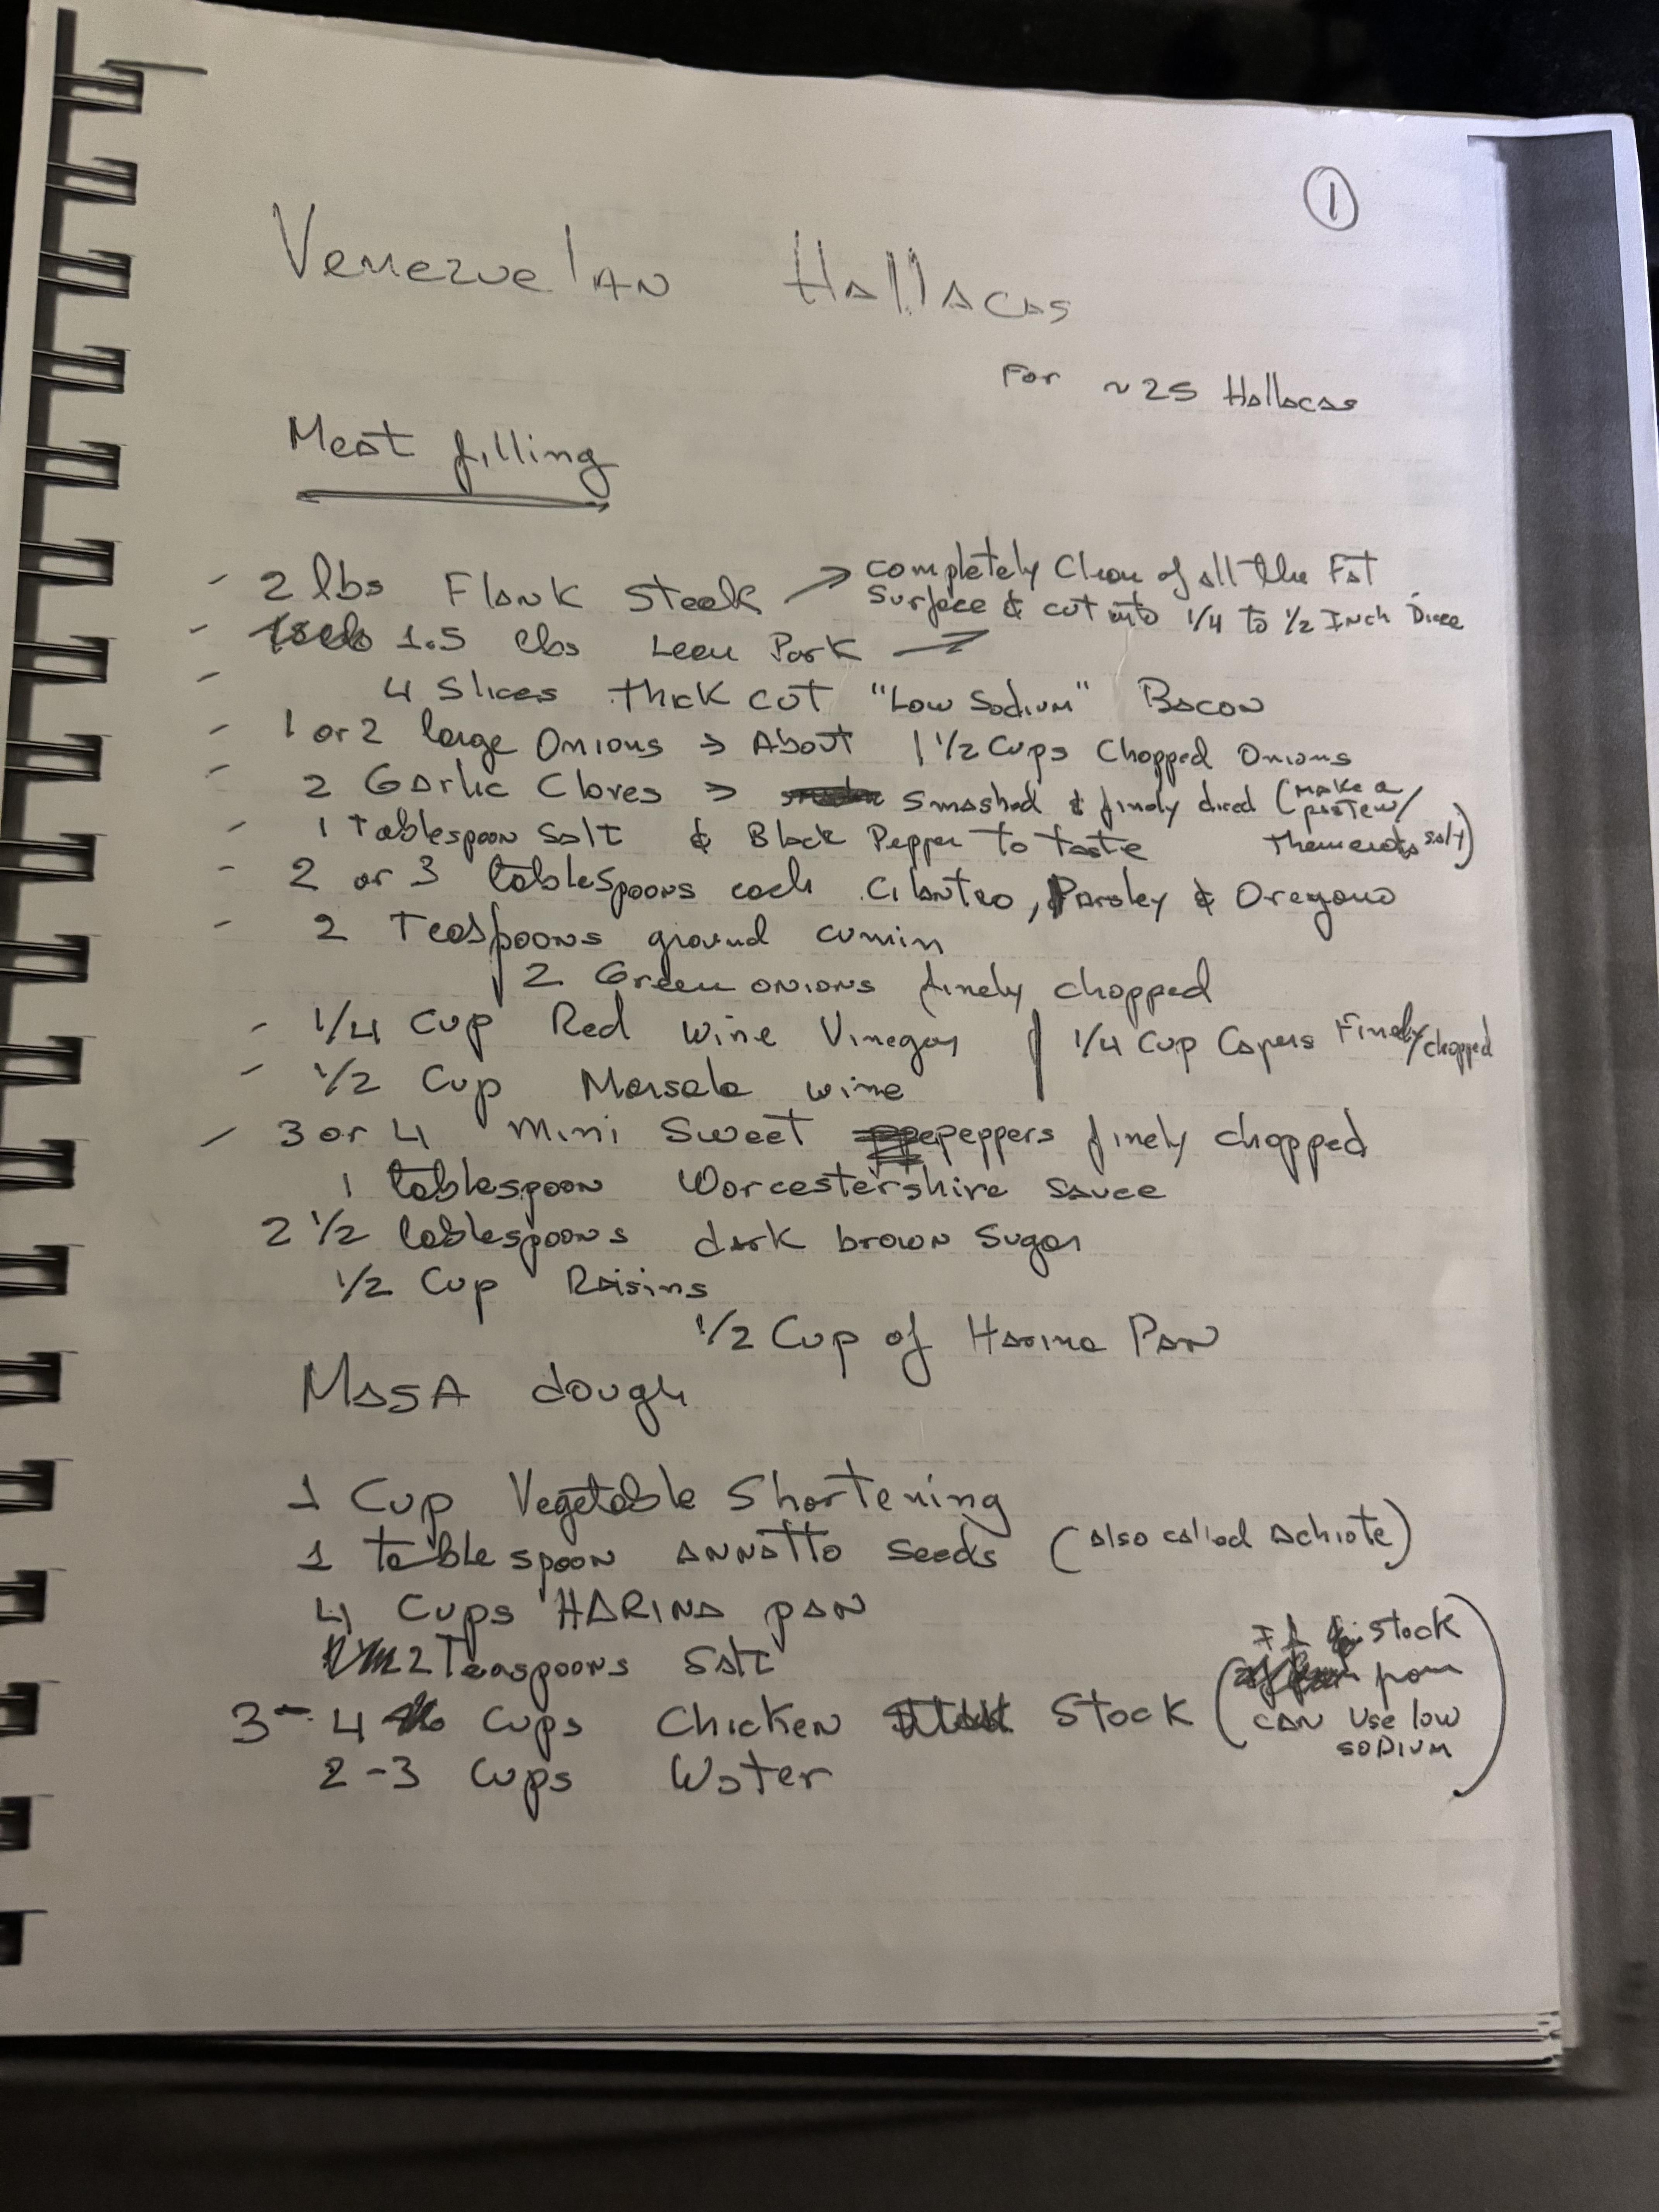 1
Venezuelan Hallacas
For ~25 Hallacas
Meat filling
- 2 lbs Flank Steak → completely Clean of all the Fat
Surface & cut into 1/4 to 1/2 Inch Dice
- 1.5 lbs Lean Pork →
- 4 Slices thick cut "Low Sodium" Bacon
- 1 or 2 large Onions → About 1 1/2 Cups Chopped Onions
- 2 Garlic Cloves → Smashed & finely diced (make a
paste w/
- 1 Tablespoon Salt & Black Pepper to taste salt)
- 2 or 3 tablespoons each Cilantro, Parsley & Oregano
- 2 Teaspoons ground cumin
2 Green onions finely chopped
- 1/4 Cup Red Wine Vinegar / 1/4 Cup Capers Finely chopped
- 1/2 Cup Marsala wine
- 3 or 4 Mini Sweet peppers finely chopped
1 tablespoon Worcestershire sauce
2 1/2 tablespoons dark brown Sugar
1/2 Cup Raisins
1/2 Cup of Harina Pan
MASA dough
1 Cup Vegetable Shortening
1 tablespoon ANNATTO seeds (also called achiote)
4 Cups HARINA PAN
2 Teaspoons Salt
3 - 4 Cups Chicken Stock (If stock
can use low
SODIUM)
2-3 Cups Water